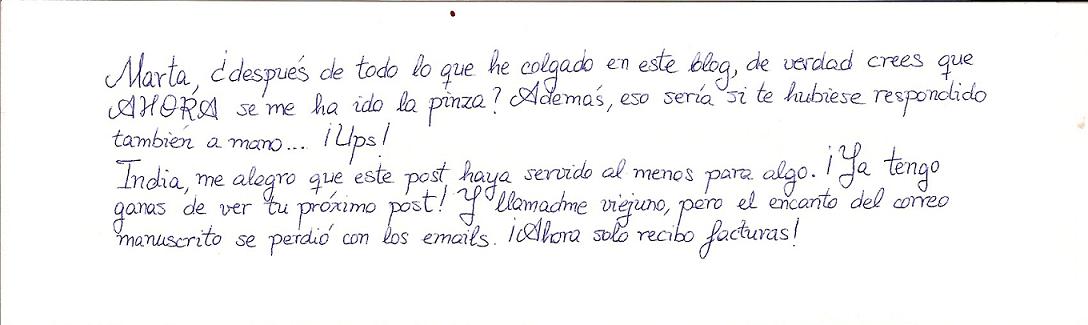 Marta, ¿después de todo lo que he colgado en este blog, de verdad crees que
AHORA se me ha ido la pinza? Además, eso sería si te hubiese respondido
también a mano... ¡Ups!
India, me alegro que este post haya servido al menos para algo. ¡Ya tengo
ganas de ver tu próximo post! Y llamadme viejuno, pero el encanto del correo
manuscrito se perdió con los emails. ¡Ahora solo recibo facturas!